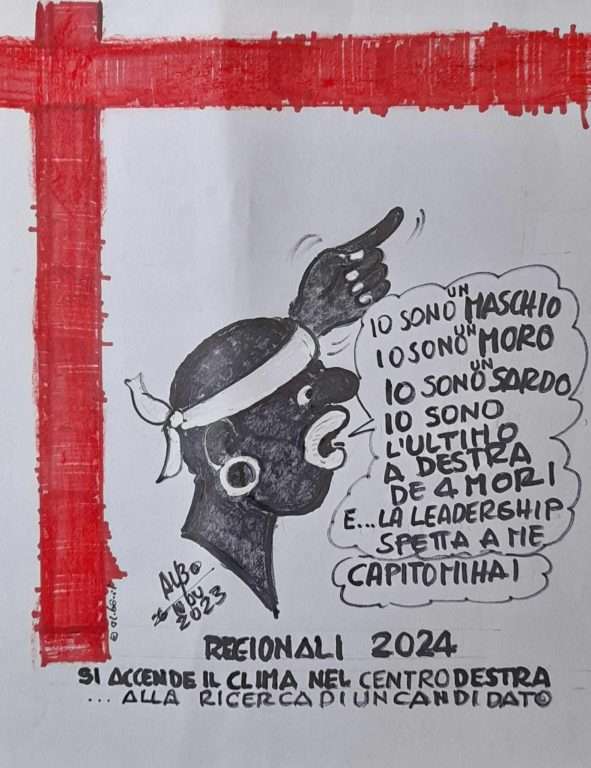 IO SONO UN MASCHIO
IO SONO UN MORO
IO SONO UN SARDO
IO SONO
L'ULTIMO
A DESTRA
DE 4 MORI
E...LA LEADERSHIP
SPETTA A ME
CAPITOMIHAI
ALBO
26 NOV
2023
REGIONALI 2024
SI ACCENDE IL CLIMA NEL CENTRODESTRA
... ALLA RICERCA DI UN CANDIDATO